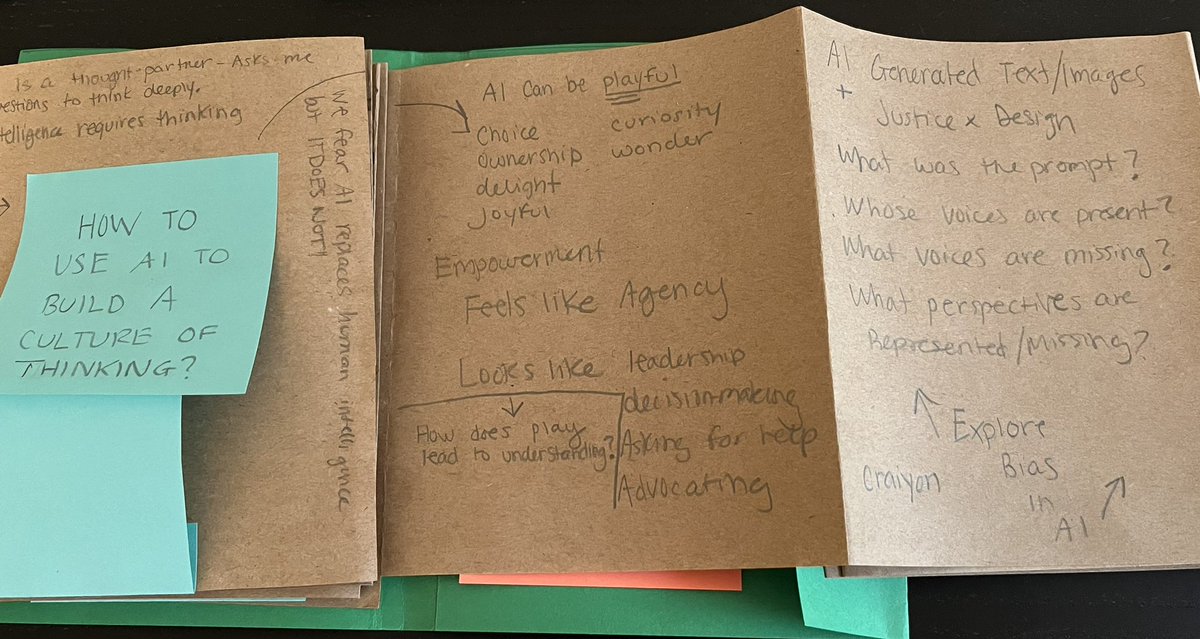 Is a thought-partner - Asks me
questions to think deeply.
Intelligence requires thinking
HOW TO
USE AI TO
BUILD A
CULTURE OF
THINKING?
We fear AI replaces human intelligence
but IT DOES NOT!
AI can be playful
Choice curiosity
ownership wonder
delight
Joyful
Empowerment
Feels like Agency
Looks like leadership
decision-making
Asking for help
Advocating
How does play
lead to understanding?
AI Generated Text/Images
+
Justice x Design
What was the prompt?
Whose voices are present?
What voices are missing?
What perspectives are
Represented/Missing?
Explore
Bias
in
AI
Craiyon